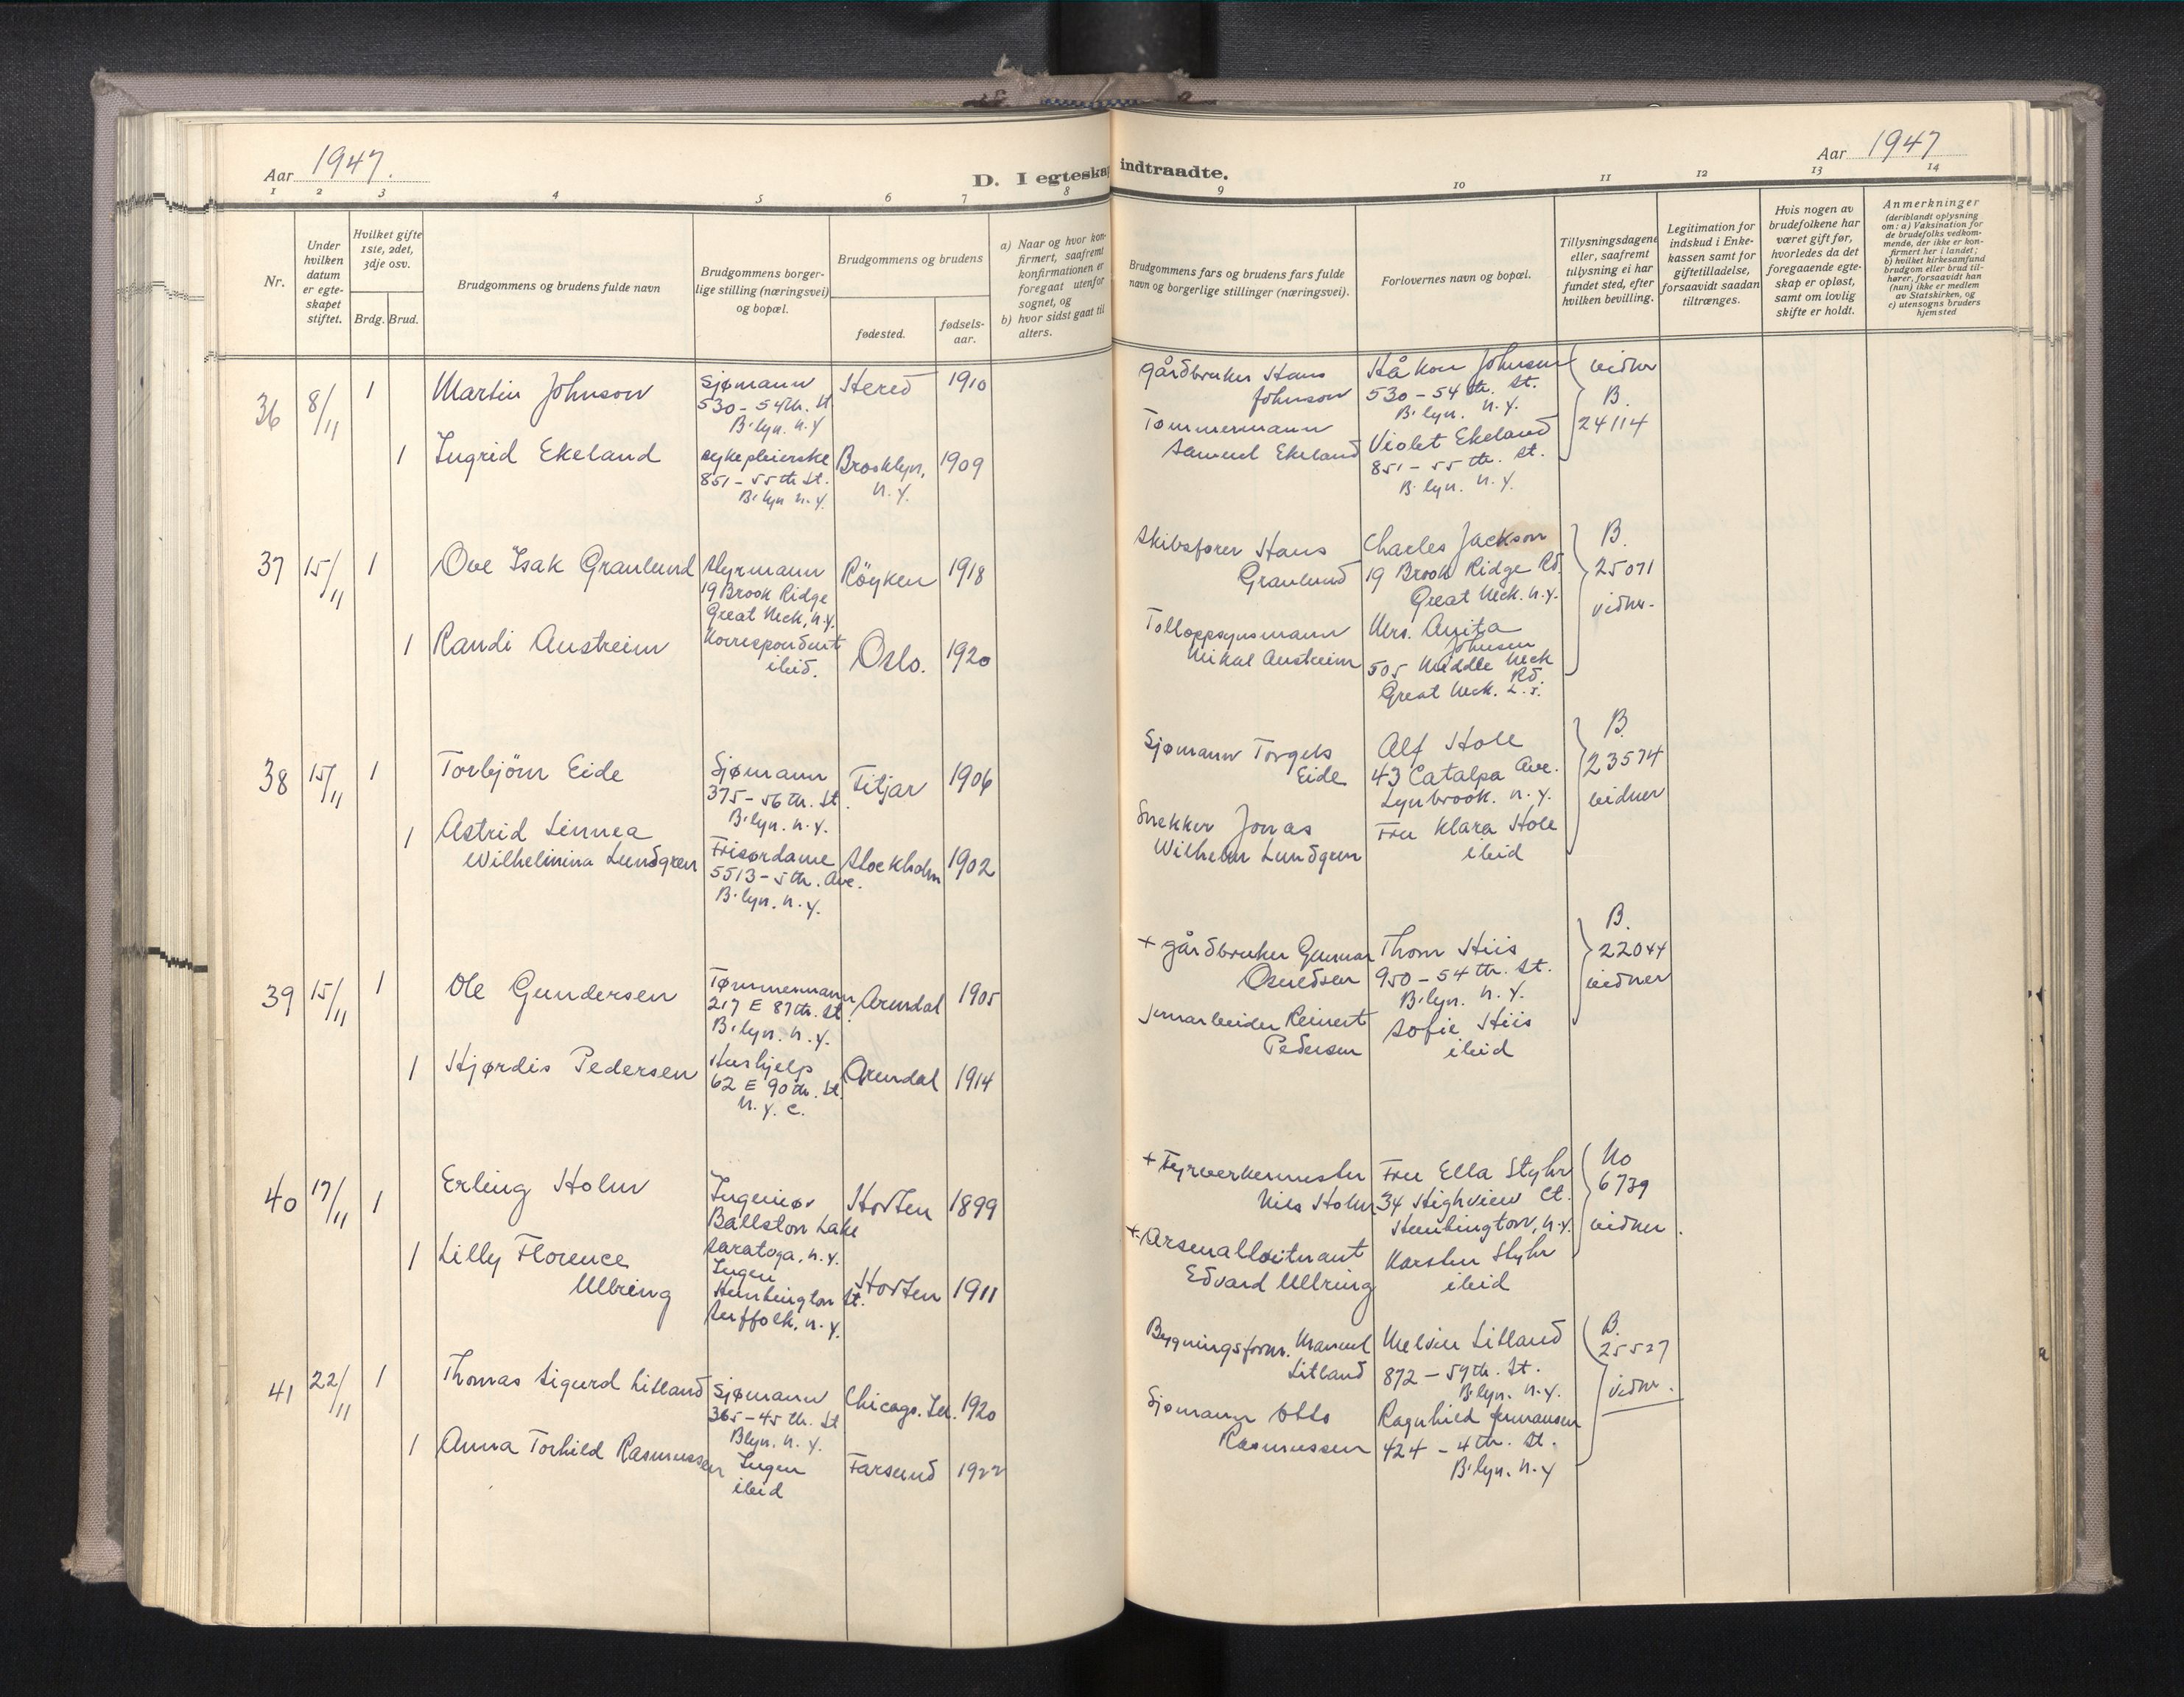 Aar 1947.
D. I egteskap indtraadte.
Aar 1947
1 2 3 4 5 6 7 8 9 10 11 12 13 14
Nr.
Under hvilken datum er egteskapet stiftet.
Hvilket gifte 1ste, 2det, 3dje osv.
Brdg. Brud.
Brudgommens og brudens fulde navn
Brudgommens borgerlige stilling (næringsvei) og bopæl.
Brudgommens og brudens
fødested.
fødselsaar.
a) Naar og hvor konfirmert, saafremt konfirmationen er foregaat utenfor sognet, og
b) hvor sidst gaat til alters.
Brudgommens fars og brudens fars fulde navn og borgerlige stillinger (næringsvei).
Forlovernes navn og bopæl.
Tillysningsdagene eller, saafremt tillysning ei har fundet sted, efter hvilken bevilling.
Legitimation for indskud i Enkekassen samt for giftetilladelse, forsaavidt saadan tiltrænges.
Hvis nogen av brudefolkene har været gift før, hvorledes da det foregaaende egteskap er opløst, samt om lovlig skifte er holdt.
Anmerkninger
(deriblandt oplysning om: a) Vaksination for de brudefolks vedkommende, der ikke er konfirmert her i landet; b) hvilket kirkesamfund brudgom eller brud tilhører, forsaavidt han (hun) ikke er medlem av Statskirken, og c) utensogns bruders hjemsted
36 8/11 1 Martin Johnson
Sjømann
530 - 54th. St
B'lyn. N.Y
Hered 1910
1 Ingrid Ekeland
sykepleierske
851 - 55th St.
B'lyn N.Y.
Brooklyn,
N.Y.
1909
Gårdbruker Hans
Johnson
Tømmermann
Samuel Ekeland
Håkon Johnsen
530 - 54th. St.
B'lyn. N.Y.
Violet Ekeland
851 - 55th. St.
B'lyn. N.Y.
vidner
B.
24114
37 15/11 1 Ove Isak Granlund
Styrmann
19 Brook Ridge
Great Neck, N.Y.
Røyken 1918
1 Randi Austreim
Korrespondent
ibid.
Oslo. 1920
Skibsfører Hans
Granlund
Tolloppsynsmann
Mikal Austreim
Charles Jackson
19 Brook Ridge Rd.
Great Neck. N.Y.
Mrs. Anita
Johnsen
505 Middle Neck
Rd.
Great Neck. L.I.
B.
25071
vidner.
38 15/11 1 Torbjörn Eide
Sjømann
375 - 56th. St.
B'lyn. N.Y.
Fitjar 1906
1 Astrid Linnea
Wilhelmina Lundgren
Frisørdame
5513 - 5th. Ave.
B'lyn. N.Y.
Stockholm 1902
Sjømann Torgels
Eide
Snekker Jonas
Wilhelm Lundgren
Alf Hole
43 Catalpa Ave.
Lynbrook. N.Y.
Fru Klara Hole
ibid
B.
23574
vidner
39 15/11 1 Ole Gundersen
Tømmermann
217 E 87th. St.
B'lyn. N.Y.
Arendal 1905
1 Hjørdis Pedersen
Hushjelp
62 E 90th. St.
N.Y.C.
Arendal 1914
+ Gårdbruker Gunnar
Osuldsen
Jernarbeider Reinert
Pedersen
Thom Hiis
950 - 54th. St.
B'lyn. N.Y.
Sofie Hiis
ibid
B.
22044
vidner
40 17/11 1 Erling Holm
Ingeniør
Ballston Lake
Saratoga, N.Y.
Horten 1899
1 Lilly Florence
Ullring
Ingen
Huntington St.
Suffolk, N.Y.
Horten 1911
+ Fyrverkermester
Nils Holm
+ Arsenalløitnant
Edvard Ullring
Fru Ella Styhr
34 Highview Ct.
Huntington, N.Y.
Karsten Styhr
ibid
No
6739
vidner.
41 22/11 1 Thomas Sigurd Litland
Sjømann
365 - 45th. St
Blyn. N.Y.
Chicago. Ill. 1920
1 Anna Torhild Rasmussen
Ingen
ibid
Farsund 1922
Bygningsform. Manuel
Litland
Sjømann Otto
Rasmussen
Melvin Litland
872 - 59th. St.
B'lyn. N.Y.
Ragnhild Hermansen
424 - 4th. St.
B'lyn. N.Y
B.
25527
vidner.